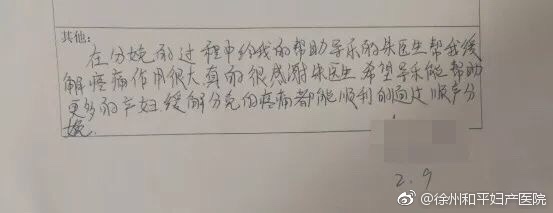 其他:
在分娩的过程中给我的帮助导乐的朱医生帮我缓
解疼痛作用很大真的很感谢朱医生 希望导乐能帮助
更多的产妇缓解分免的疼痛都能顺利的通过顺产分
娩.
2.9
@徐州和平妇产医院